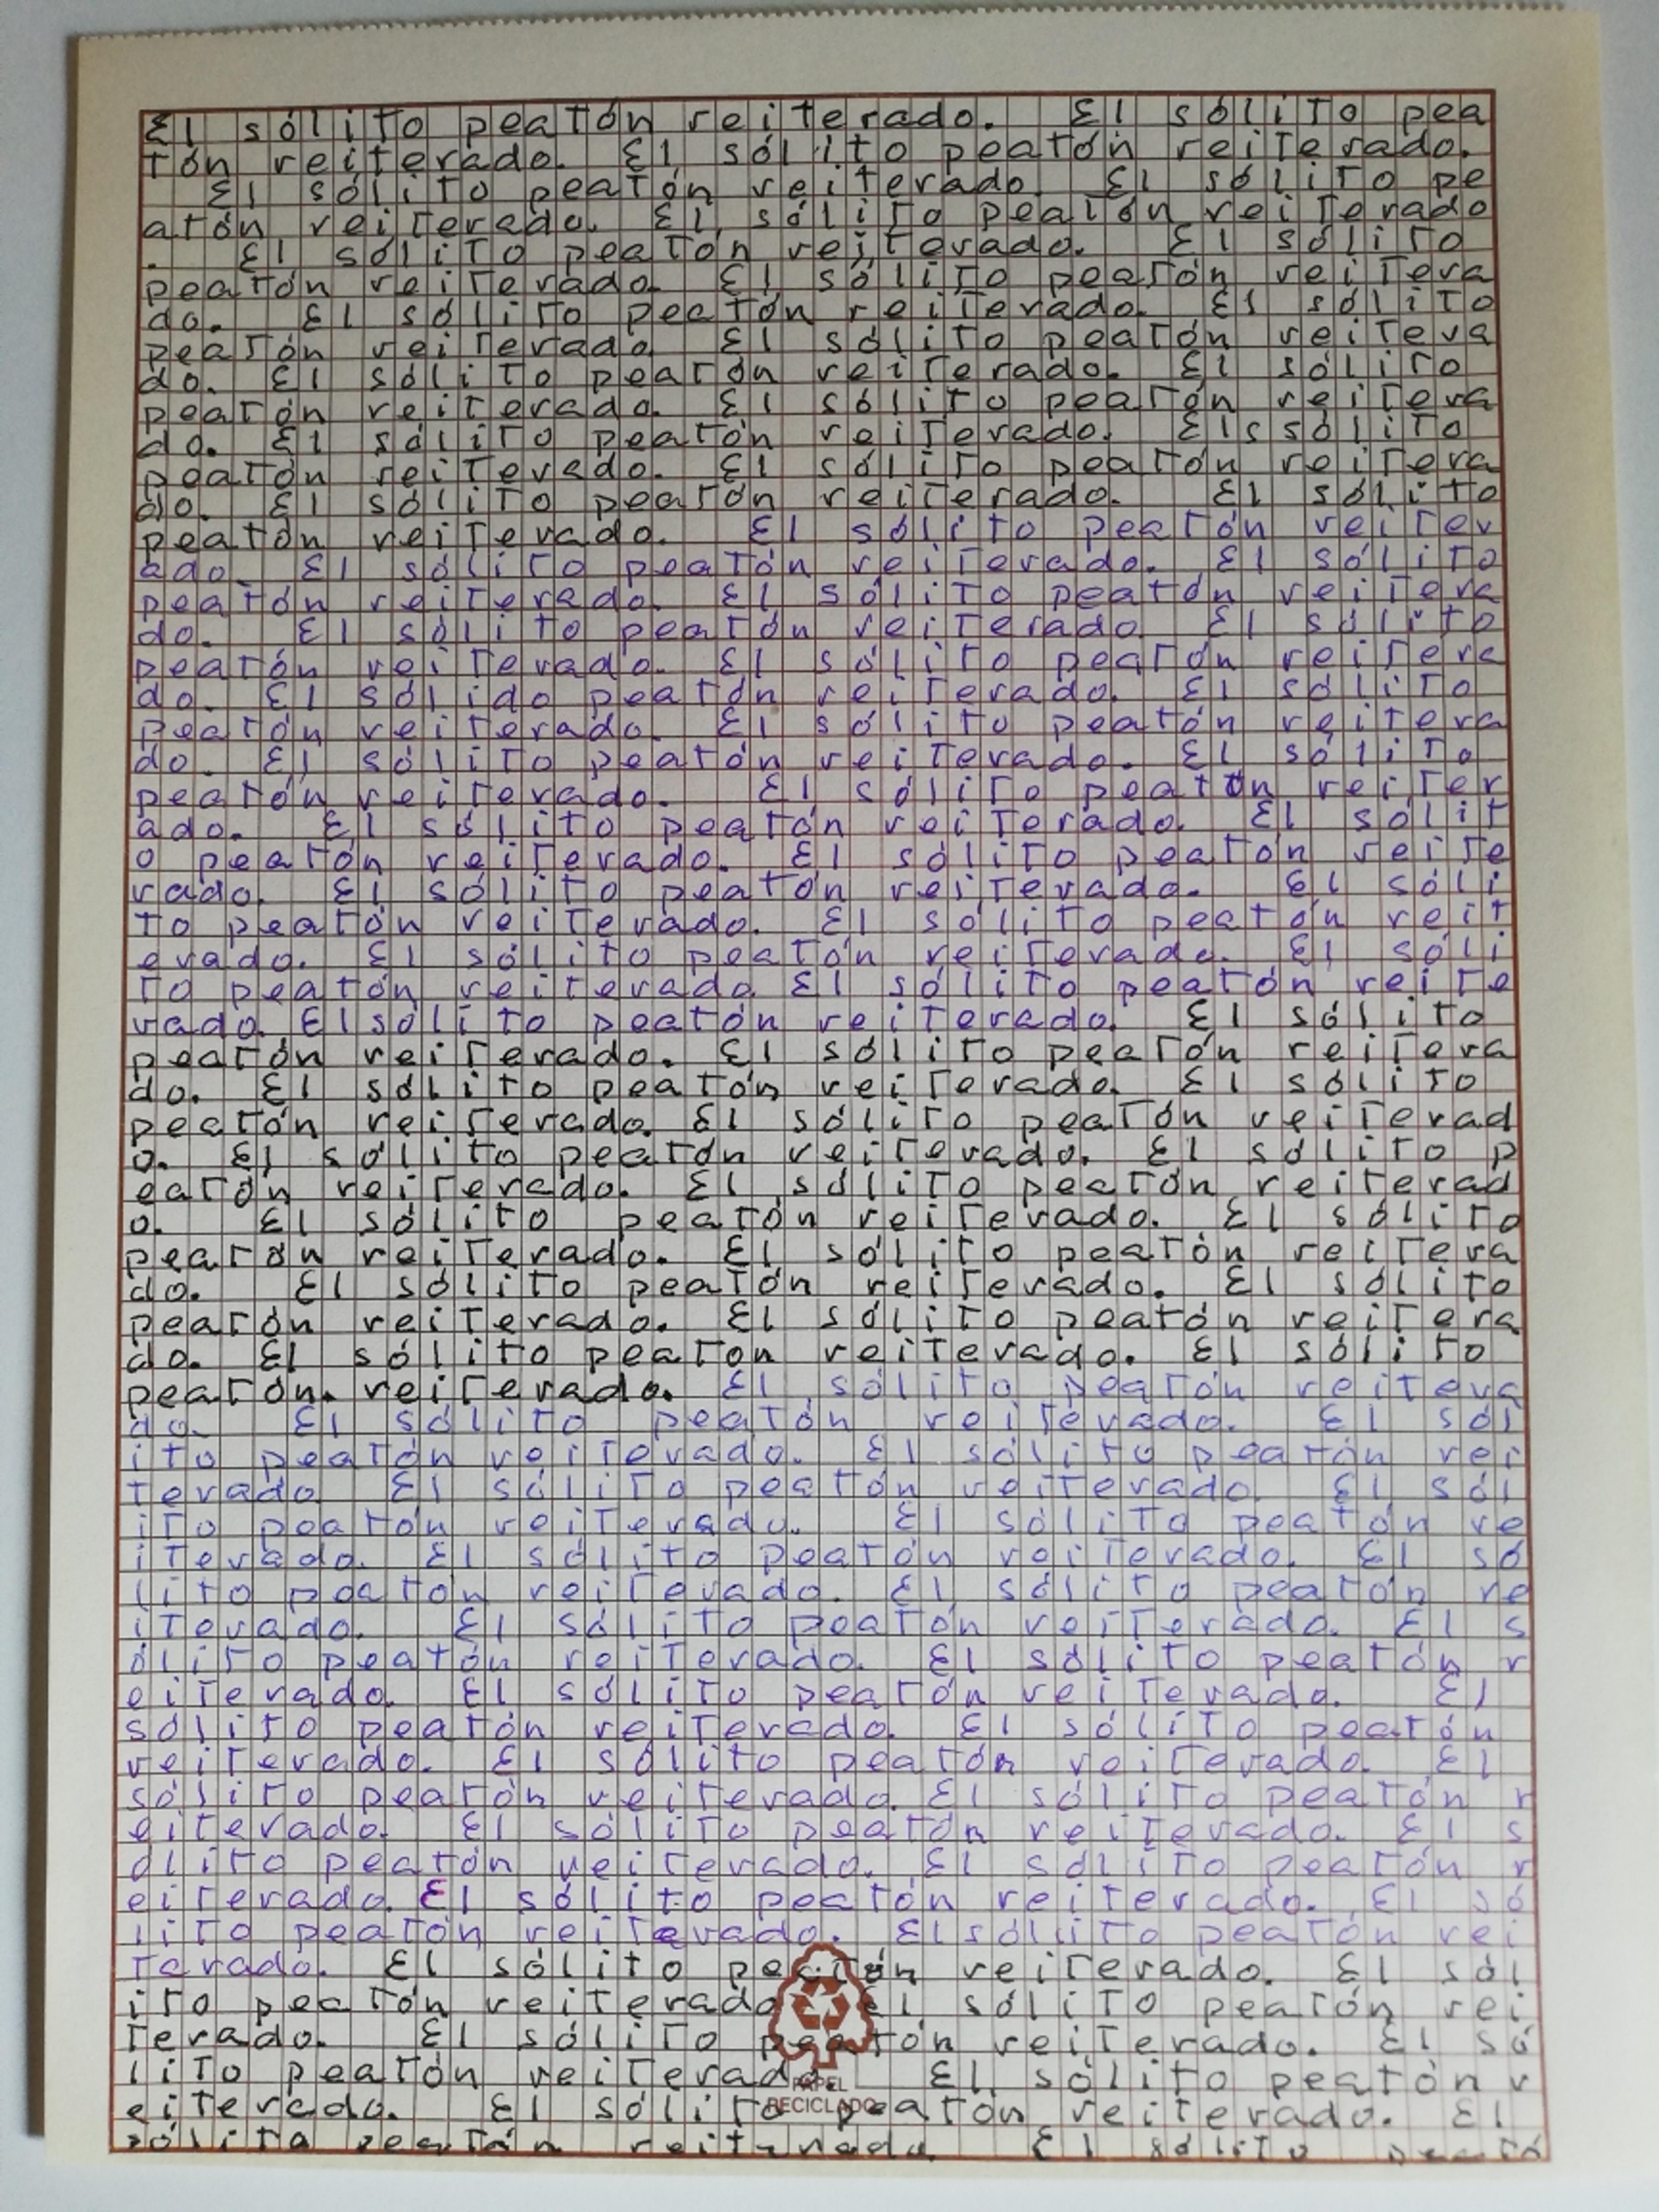 El sólito peatón reiterado. El sólito pea
tón reiterado. El sólito peatón reiterado.
El sólito peatón reiterado. El sólito pe
atón reiterado. El sólito peatón reiterado
. El sólito peaton reiterado. El sólito
peatón reiterado. El sólito peatón reitera
do. El sólito peatón reiterado. El sólito
peatón reiterado. El sólito peatón reitera
do. El sólito peatón reiterado. El sólito
peatón reiterado. El sólito peatón reitera
do. El sólito peatón reiterado. Els sólito
peatón reiterado. El sólito peatón reitera
do. El sólito peatón reiterado. El sólito
peatón reiterado. El sólito peatón reiter
ado. El sólito peatón reiterado. El sólito
peatón reiterado. El sólito peatón reitera
do. El sólito peatón reiterado. El sólito
peatón reiterado. El sólito peatón reitera
do. El sólido peatón reiterado. El sólito
peatón reiterado. El sólito peatón reitera
do. El sólito peatón reiterado. El sólito
peatón reiterado. El sólito peatón reiter
ado. El sólito peatón reiterado. El sólit
o peatón reiterado. El sólito peatón reite
rado. El sólito peatón reiterado. El sóli
to peatón reiterado. El sólito peatón reit
erado. El sólito peatón reiterado. El sóli
to peatón reiterado. El sólito peatón reite
rado. El sólito peatón reiterado. El sólito
peatón reiterado. El sólito peatón reitera
do. El sólito peatón reiterado. El sólito
peatón reiterado. El sólito peatón reiterad
o. El sólito peatón reiterado. El sólito p
eatón reiterado. El sólito peatón reiterad
o. El sólito peatón reiterado. El sólito
peatón reiterado. El sólito peatón reitera
do. El sólito peatón reiterado. El sólito
peatón reiterado. El sólito peatón reitera
do. El sólito peaton reiterado. El sólito
peatón. reiterado. El sólito peatón reitera
do. El sólito peatón reiterado. El sól
ito peatón reiterado. El sólito peatón rei
terado El sólito peatón reiterado. El sól
ito peatón reiterado. El sólito peatón re
iterado. El sólito peatón reiterado. El só
lito peatón reiterado. El sólito peatón re
iterado. El sólito peatón reiterado. El s
ólito peatón reiterado. El sólito peatón r
eiterado. El sólito peatón reiterado. El
sólito peatón reiterado. El sólito peatón
reiterado. El sólito peatón reiterado. El
sólito peatón reiterado. El sólito peatón r
eiterado. El sólito peatón reiterado. El s
ólito peatón reiterado. El sólito peatón r
eiterado. El sólito peatón reiterado. El só
lito peatón reiterado. El sólito peatón rei
terado. El sólito peatón reiterado. El sól
ito peatón reiterado El sólito peatón rei
terado. El sólito peatón reiterado. El só
lito peatón reiterado. El sólito peatón r
PAPEL
eiterado. El sólito peaton reiterado. El
RECICLADO
sólito peatón reiterado. El sólito peató